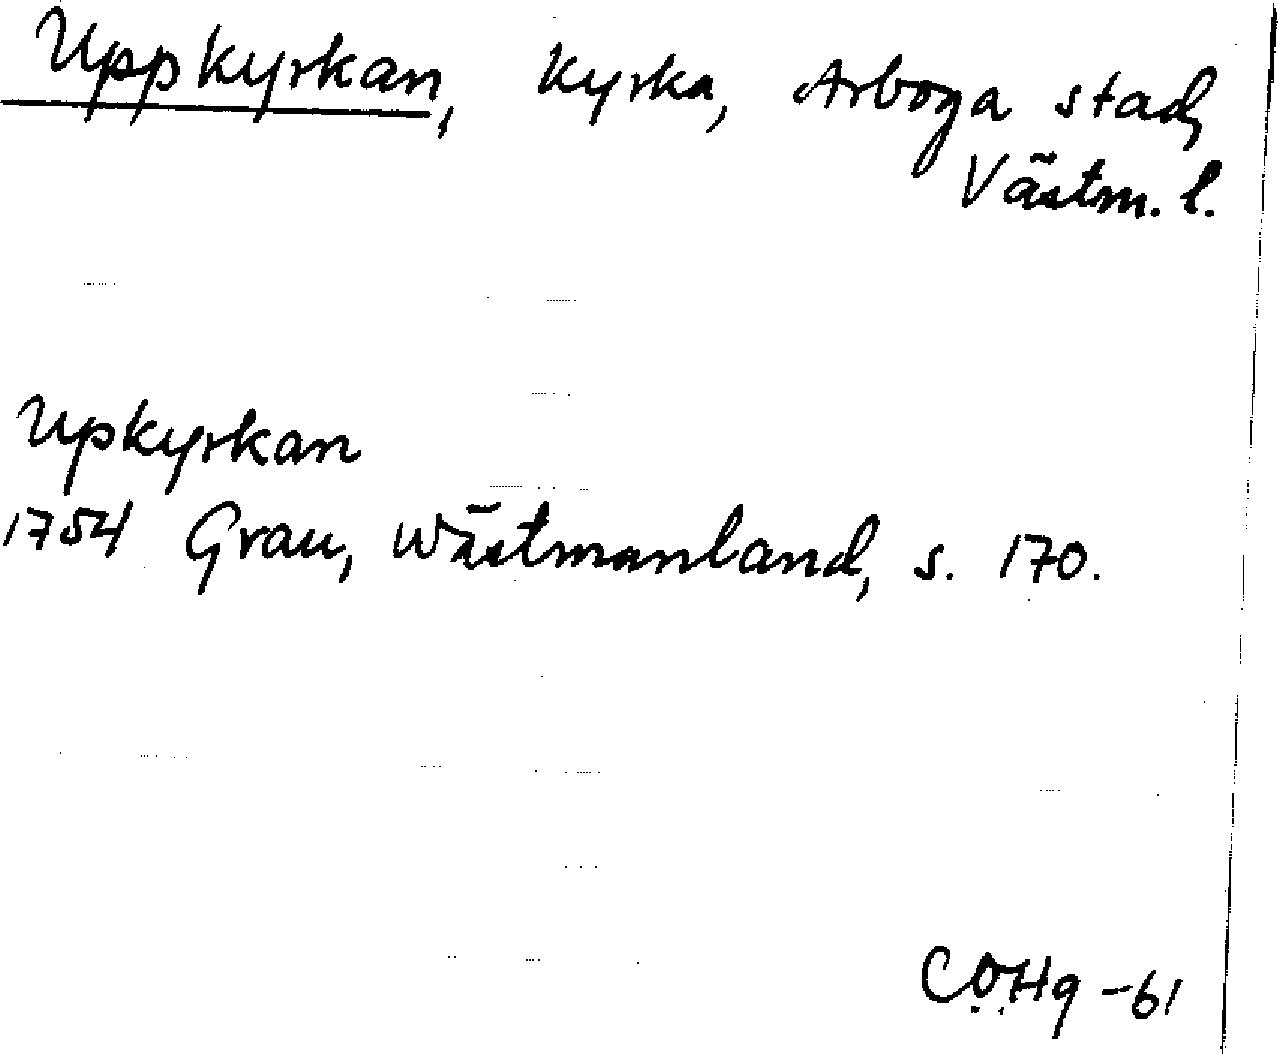 Uppkyrkan, Kyrka, Arboga stad,
Västm. l.
Upkyrkan
1754 Grau, Wästmanland, s. 170.
C.O.Hg -61